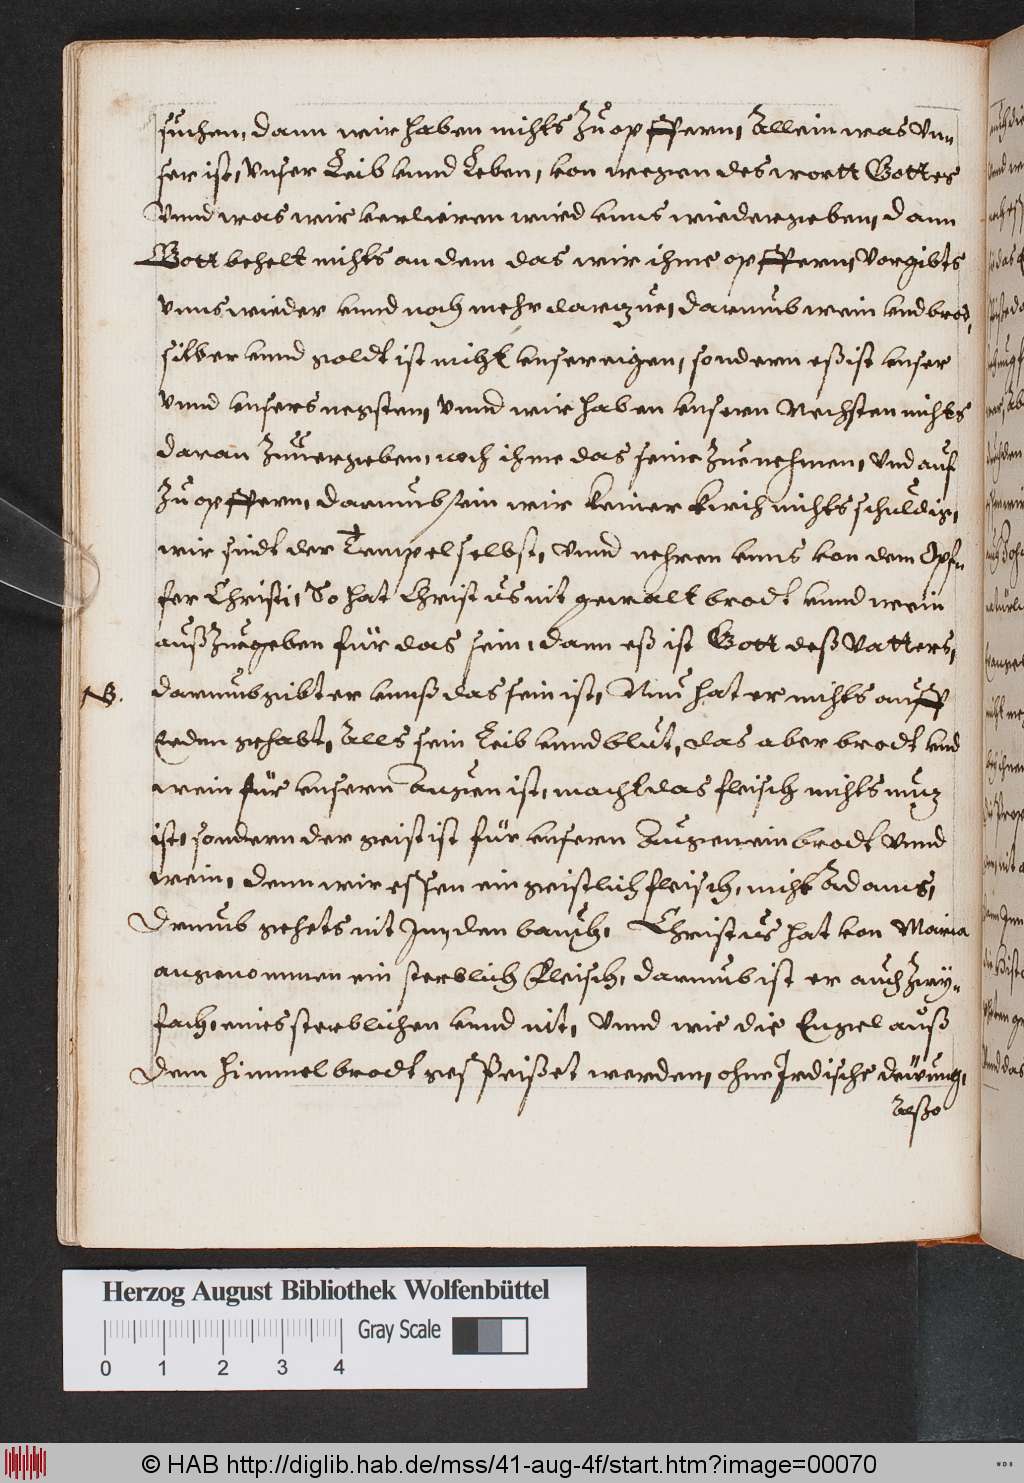 suchen, dann wir haben nichts zu opffern, Allein was Vnn
ser ist, Vnser Leib vnnd Leben, von wegen des wortt Gottes
Vnnd was wir verlieren wird vnns wiedergeben, dann
Gott behelt nichts an dem das wir ihme opffern, Vorgibts
Vnns wieder vnnd noch mehr darzue, darumb wein vnd brod,
silber vnnd goldt ist nicht vnser eigen, sondern eß ist vnser
Vnnd vnsers negsten, Vnnd wir haben vnsern Nechsten nichts
daran Zuuergeben, noch ihme das seine Zuenehmen, Vnd auf
Zu opffern, darumb sein wir keiner kirch nichts schuldig,
wir sindt der Tempel selbst, Vnnd nehren vnns von dem Opf-
fer Christi, So hat Christus nit gewalt brodt vnnd wein
außzuegeben für das sein, dann eß ist Gott deß Vatters,
NB. darumb gibt er vnnß das sein ist, Nun hat er nichts auff
Erden gehabt, Alls sein Leib vnnd blut, das aber brodt vnd
wein für vnsern Augen ist, macht das fleisch nichts nuz
ist, sondern der geist ist für vnsern Augen ein brodt Vnnd
wein, denn wir essen ein geistlich fleisch, nicht Adams,
Drumb gehets nit Jnn den bauch, Christus hat von Maria
angenommen ein sterblich fleisch, darumb ist er auch Zwy-
fach, eines sterblichen vnnd nit, Vnnd wie die Engel auß
dem himmelbrodt gespeißet werden, ohne Irdische dewung,
Alßo
Herzog August Bibliothek Wolfenbüttel
Gray Scale
0 1 2 3 4
© HAB http://diglib.hab.de/mss/41-aug-4f/start.htm?image=00070